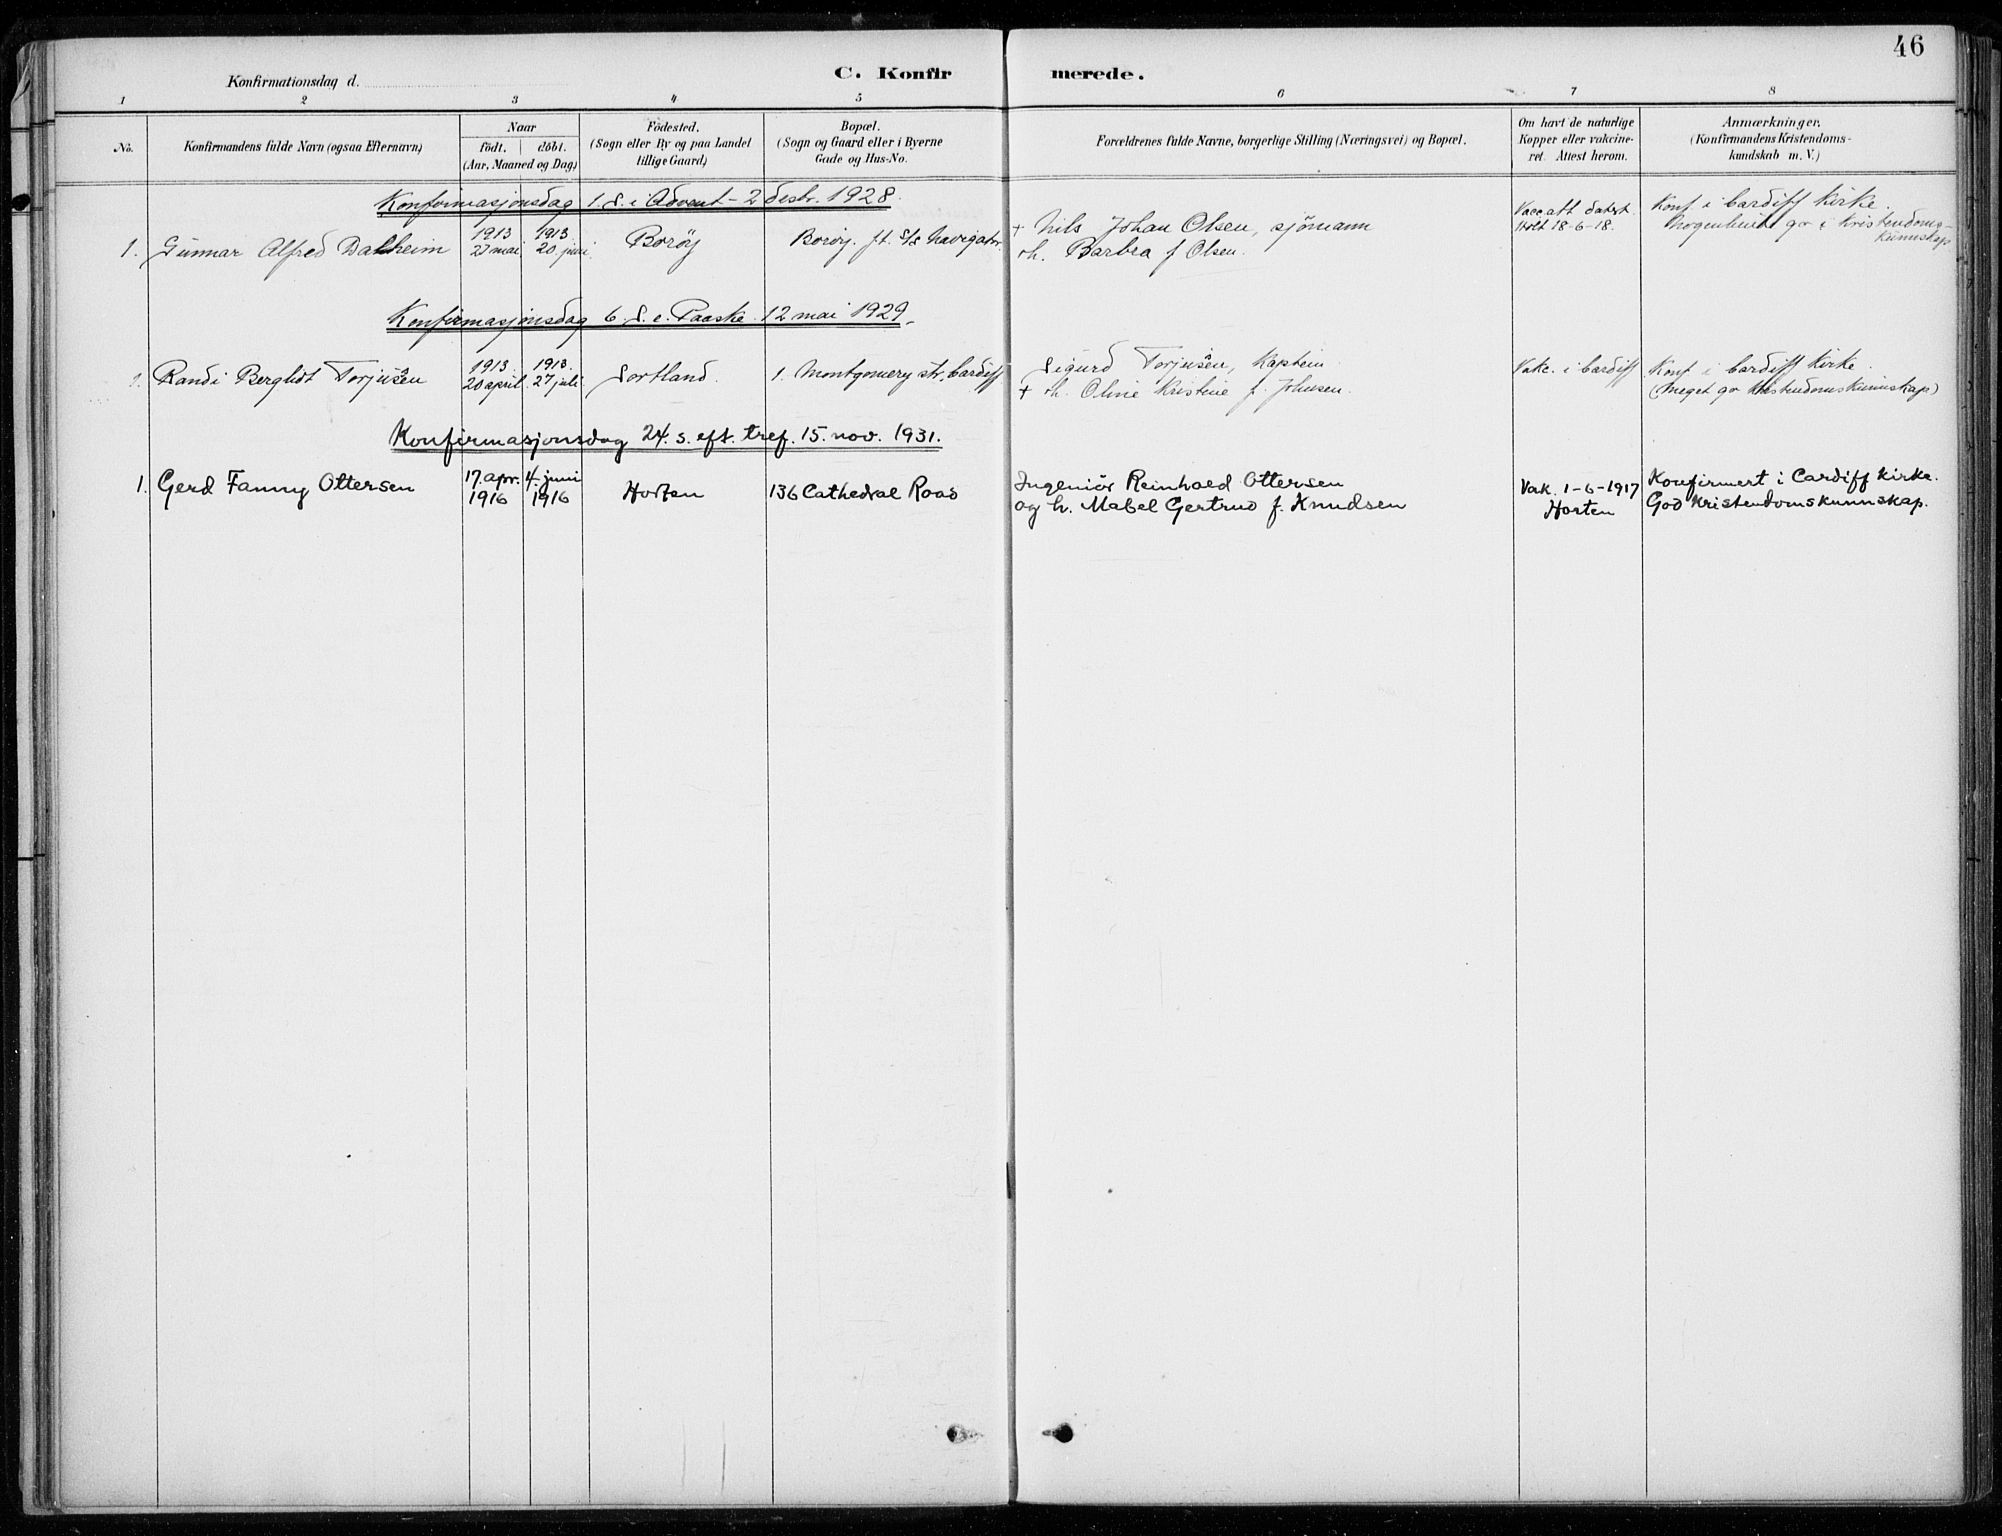 46
Konfirmationsdag d.
C. Konfirmerede.
1 2 3 4 5 6 7 8
No.
Konfirmandens fulde Navn (ogsaa Efternavn)
Naar
født. døbt.
(Aar, Maaned og Dag)
Fødested.
(Sogn eller By og paa Landet
tillige Gaard)
Bopæl.
(Sogn og Gaard eller i Byerne
Gade og Hus-No.
Forældrenes fulde Navne, borgerlige Stilling (Næringsvei) og Bopæl.
Om havt de naturlige
Kopper eller vakcine-
ret. Attest herom.
Anmærkninger.
(Konfirmandens Kristendoms-
kundskab m. V.)
Konfirmasjonsdag 1. S. i Advent - 2 desbr. 1928.
1. Gunnar Alfred Dalheim
1913
27 mai
1913
20. juni
Borøy
Borøy. f.t. S/S Navigatør.
+ Nils Johan Olsen, sjömann
o h. Barbra f Olsen.
Vacc att datert
Holt 18-6-18.
Konf i Cardiff Kirke.
Nogenlunde go Kristendoms-
kunnskap
Konfirmasjonsdag 6. S. e. Paaske. 12 mai 1929.
1. Randi Bergliot Torjusen
1913
20 april
1913.
27 juli
Sortland.
1. Montgomery str, Cardiff
Sigurd Torjusen, Kaptein
+ o h. Oline Kristine f. Johnsen.
Vakc. i Cardiff
Konf i Cardiff Kirke.
(Meget go Kristendomskunnskap)
Konfirmasjonsdag 24. s. eft. tref. 15. nov. 1931.
1. Gerd Fanny Ottersen
17. apr.
1916
4. juni
1916
Horten
136 Cathedral Road
Ingeniör Reinhold Ottersen
og h. Mabel Gertrud f. Knudsen
Vak. 1-6-1917
Horten
Konfirmert i Cardiff Kirke.
God Kristendomskunnskap.